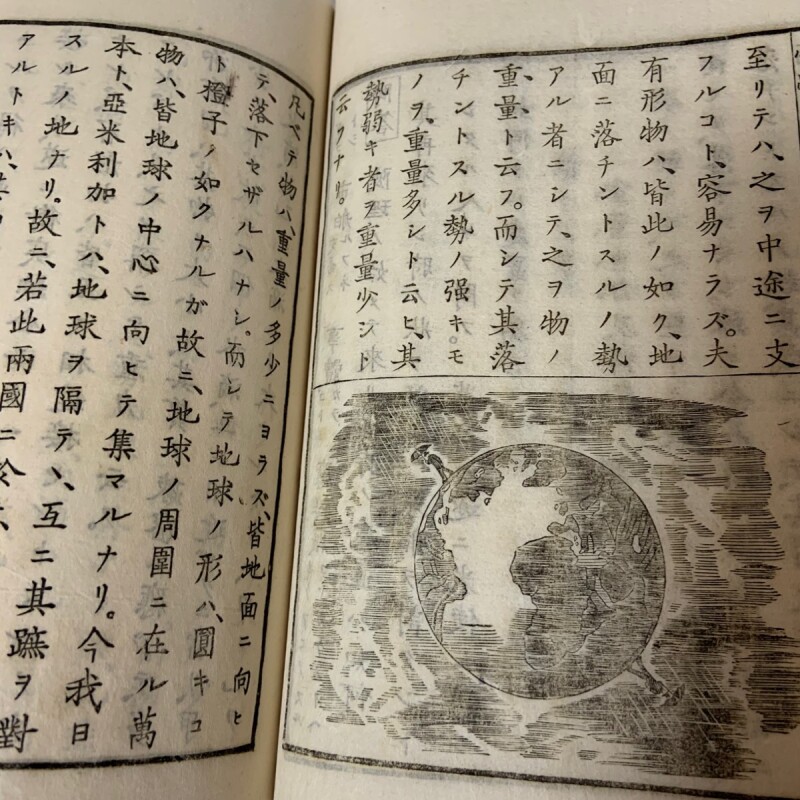 至リテハ、之ヲ中途ニ支
フルコト、容易ナラズ。夫
有形物ハ、皆此ノ如ク、地
面ニ落チントスルノ勢
アル者ニシテ、之ヲ物ノ
重量ト云フ。而シテ其落
チントスル勢ノ强キ。モ
ノヲ、重量多シト云ヒ、其
勢弱キ者ヲ重量少シト
云フナリ。
凡ベテ物ハ、重量ノ多少ニヨラズ、皆地面ニ向ヒ
テ、落下セザルハナシ。而シテ地球ノ形ハ、圓キコ
ト橙子ノ如クナルガ故ニ、地球ノ周圍ニ在ル萬
物ハ、皆地球ノ中心ニ向ヒテ集マルナリ。今我日
本ト、亞米利加トハ、地球ヲ隔テヽ、互ニ其蹠ヲ對
スルノ地ナリ。故ニ、若此兩國ニ於
アルトキハ、其